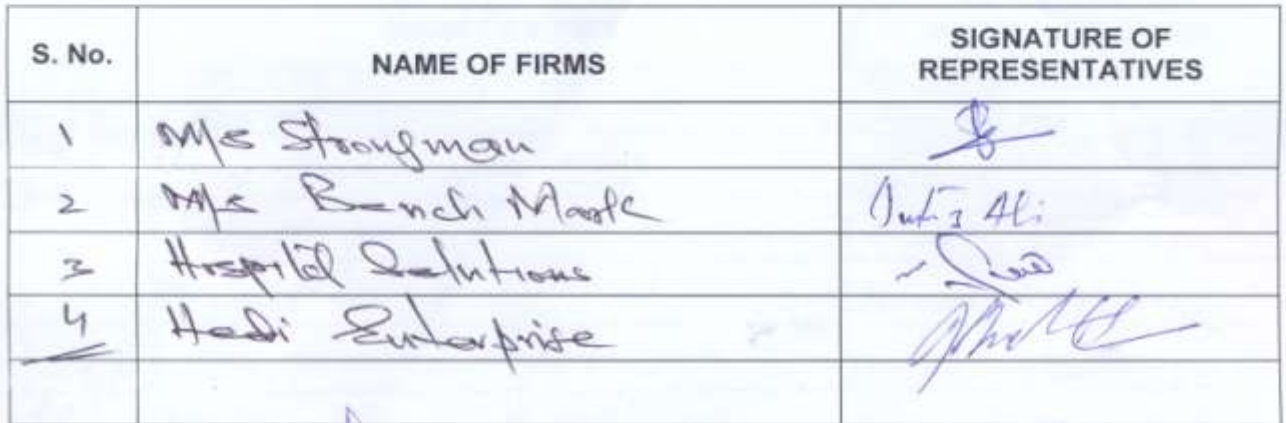 S. No. NAME OF FIRMS SIGNATURE OF REPRESENTATIVES
1 M/s Strongman
2 M/s Bench Mark Ali
3 Hospital Solutions
4 Hadi Enterprise